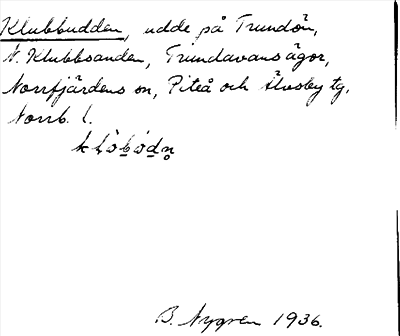 Klubbudden, udde på Trundön,
N. Klubbsanden, Trundavans ägor,
Norrfjärdens sn, Piteå och Älvsby tg,
Norrb. l.
B. Nygren 1936.